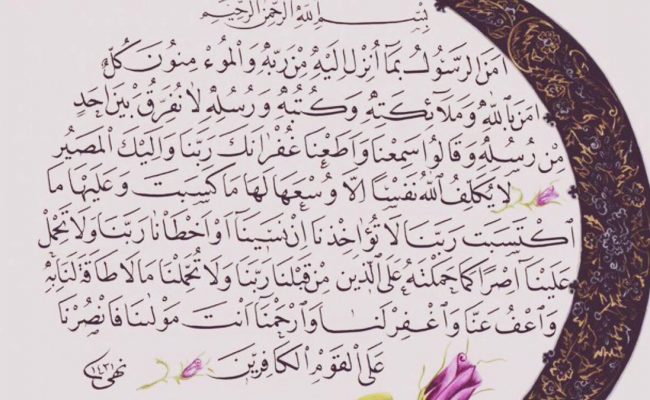 بِسْمِ اللّٰهِ الرَّحْمٰنِ الرَّحِيمِ
اٰمَنَ الرَّسُولُ بِمَا اُنْزِلَ اِلَيْهِ مِنْ رَبِّهِ وَالْمُوءْمِنُونَ كُلٌّ
اٰمَنَ بِاللّٰهِ وَمَلَآئِكَتِهِ وَكُتُبِهِ وَرُسُلِهِ لَا نُفَرِّقُ بَيْنَ اَحَدٍ
مِنْ رُسُلِهِ وَقَالُوا سَمِعْنَا وَاَطَعْنَا غُفْرَانَكَ رَبَّنَا وَاِلَيْكَ الْمَصِيرُ
لَا يُكَلِّفُ اللّٰهُ نَفْسًا اِلَّا وُسْعَهَا لَهَا مَا كَسَبَتْ وَعَلَيْهَا مَا
اكْتَسَبَتْ رَبَّنَا لَا تُؤَاخِذْنَا اِنْ نَسِينَا اَوْ اَخْطَاْنَا رَبَّنَا وَلَا تَحْمِلْ
عَلَيْنَا اِصْرًا كَمَا حَمَلْتَهُ عَلَى الَّذِينَ مِنْ قَبْلِنَا رَبَّنَا وَلَا تُحَمِّلْنَا مَا لَا طَاقَةَ لَنَا بِهِ
وَاعْفُ عَنَّا وَاغْفِرْ لَنَا وَارْحَمْنَا اَنْتَ مَوْلٰينَا فَانْصُرْنَا
عَلَى الْقَوْمِ الْكَافِرِينَ
نهى ١٤٣١